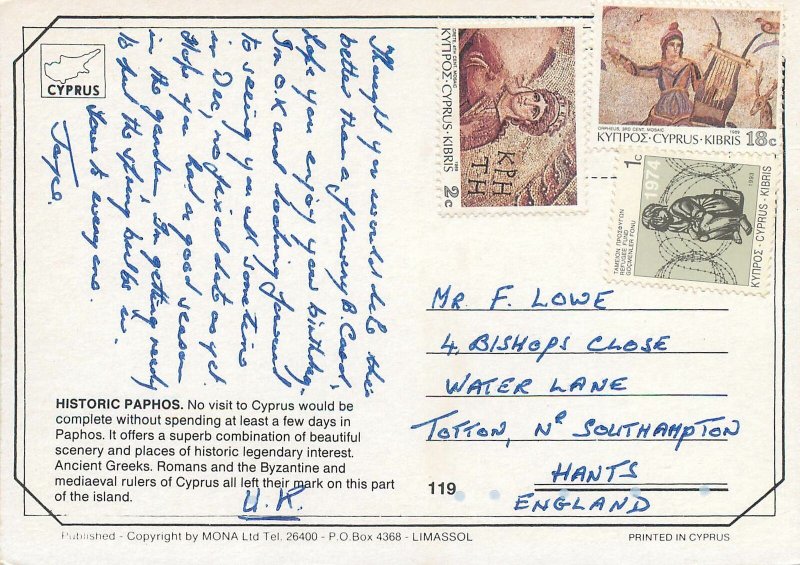 CYPRUS
Thought you would like this
better than a flowery B. Card,
hope you enjoy your birthday.
I'm O.K and looking forward
to seeing you all sometime
in Dec, no fixed date as yet.
Hope you had a good season
in the garden. I'm getting ready
to put the spring bulbs in.
Love to everyone.
Joyce.
HISTORIC PAPHOS. No visit to Cyprus would be
complete without spending at least a few days in
Paphos. It offers a superb combination of beautiful
scenery and places of historic legendary interest.
Ancient Greeks. Romans and the Byzantine and
mediaeval rulers of Cyprus all left their mark on this part
of the island.
U.K.
Published - Copyright by MONA Ltd Tel. 26400 - P.O.Box 4368 - LIMASSOL
ΚΥΠΡΟΣ·CYPRUS·KIBRIS
2c
1989
CRETE, 4TH CENT. MOSAIC
ΚΡΗ
ΤΗ
ORPHEUS, 3RD CENT. MOSAIC
1989
ΚΥΠΡΟΣ·CYPRUS·KIBRIS 18c
1c
1974
ΤΑΜΕΙΟΝ ΠΡΟΣΦΥΓΩΝ
REFUGEE FUND
GÖÇMENLER FONU
ΚΥΠΡΟΣ·CYPRUS·KIBRIS
MR F. LOWE
4, BISHOPS CLOSE
WATER LANE
TOTTON, Nr SOUTHAMPTON
HANTS
ENGLAND
119
PRINTED IN CYPRUS